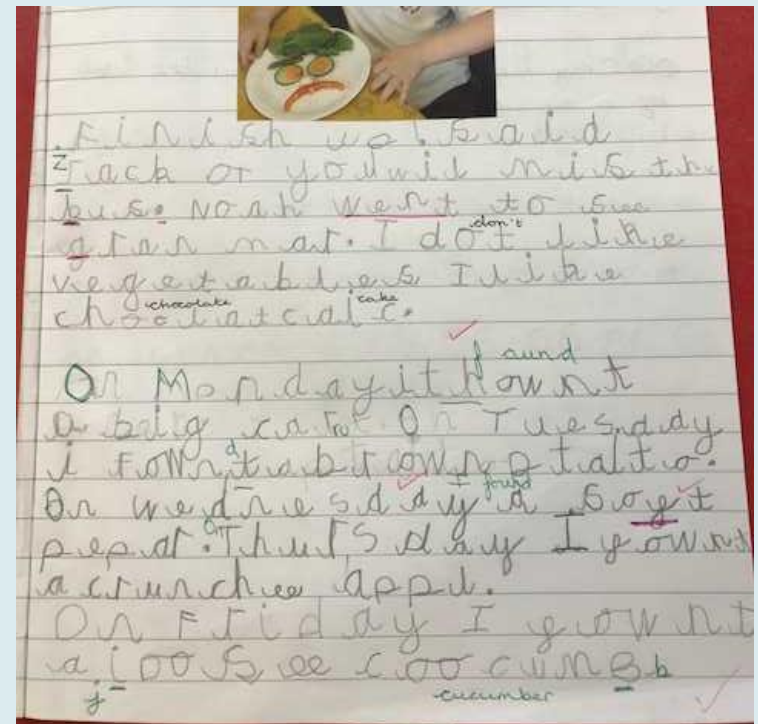 Finish up! said
Zack or you wil mis the
bus. Noah went to see
gran mar. I dot like
don't
vegetables I like
chocolate cake
choolat caic.
found
On Monday it fownt
a big carot On Tuesday
i fownt a brown potatto.
found
On wednesday a soyt
pepar. On Thursday I fownt
a crunchee appl.
On Friday I fownt
a joosee coocumB b
j cucumber